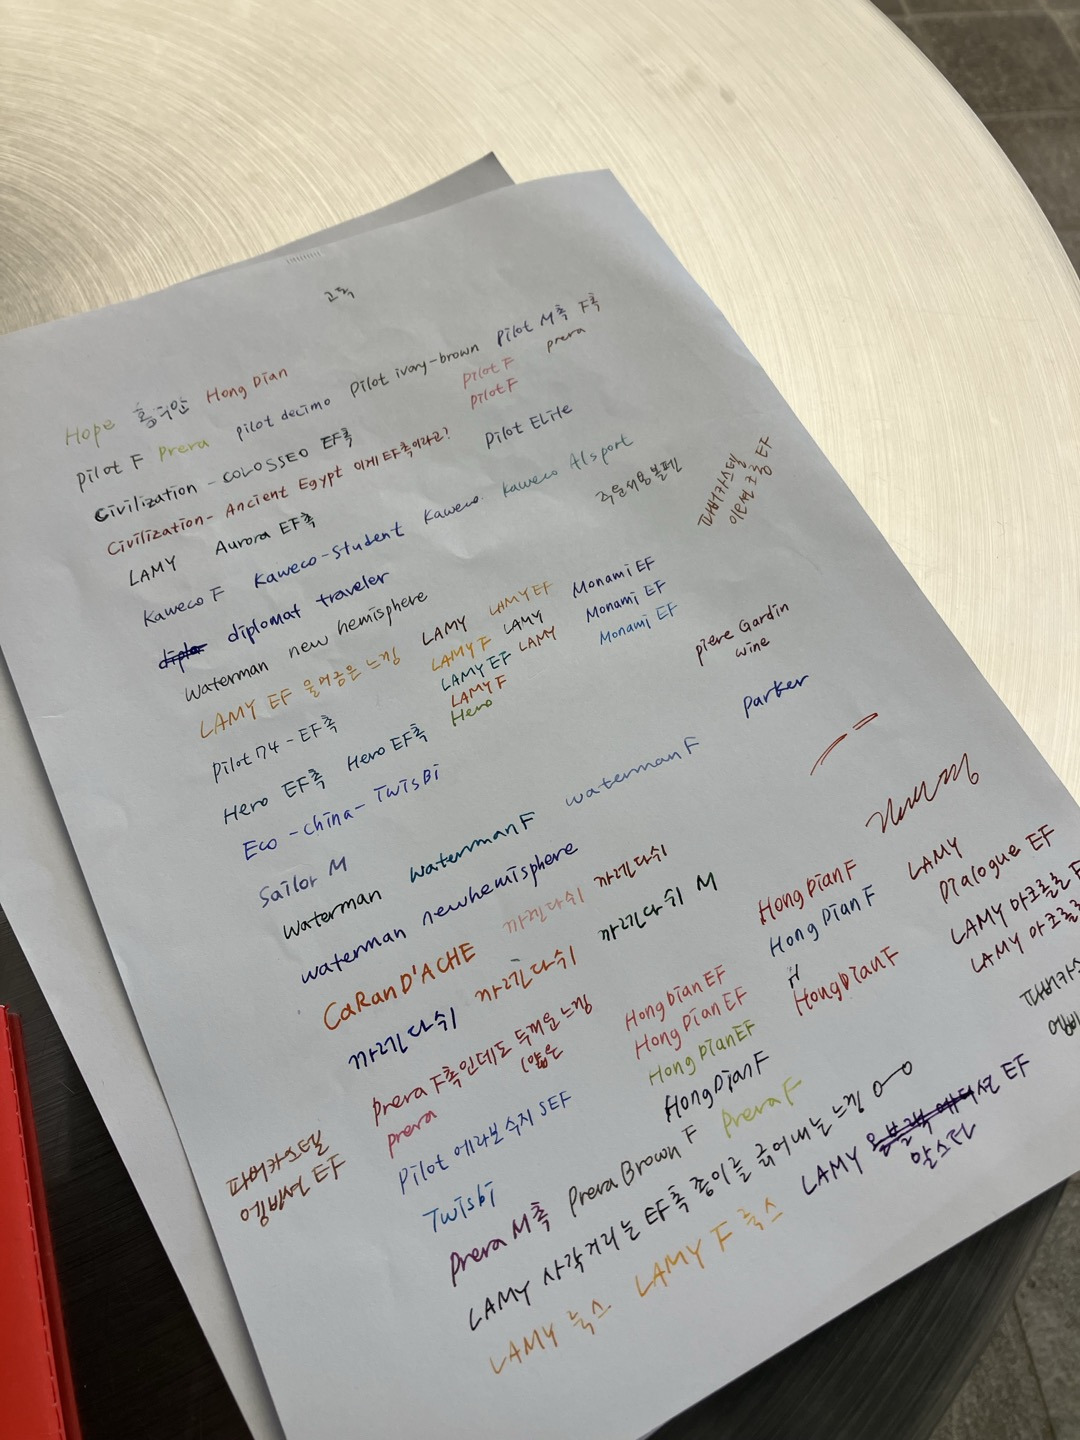 Hope 홍디안 Hong Dian
Pilot F Prera pilot decimo Pilot ivory-brown Pilot M촉 F촉
Pilot F prera
Pilot F
Civilization - COLOSSEO EF촉
Civilization - Ancient Egypt 이게 EF촉이라고? Pilot ELite
LAMY Aurora EF촉
Kaweco F Kaweco-Student Kaweco. Kaweco Alsport
주문서용볼펜
파버카스텔
이모션 크롬 EF
diplomat traveler
Waterman new hemisphere
LAMY EF 물머금은 느낌 LAMY LAMY EF Monami EF
LAMY F LAMY Monami EF
LAMY EF LAMY Monami EF
LAMY F
Hero
piere Gardin
wine
Pilot 74 - EF촉
Hero EF촉 Hero EF촉
Parker
Eco - china - TWisBi
Sailor M
Waterman Waterman F waterman F
waterman newhemisphere
CaRan D'ACHE 까렌다쉬 까렌다쉬
까렌다쉬 까렌다쉬 까렌다쉬 M
Prera F촉인데도 두꺼운느낌
prera
Pilot 에라보 수지 SEF
Twisbi
Hong Dian EF
Hong Dian EF
Hong Dian EF
Hong Dian F
Hong Dian F
Hong Dian F
H
Hong Dian F
LAMY
Dialogue EF
LAMY 아크론
LAMY 아크론
파버카스
파버카스텔
잉벤션 EF
Prera M촉 Prera Brown F Prera F
LAMY 사각거리는 EF촉 종이를 긁어내는 느낌
LAMY 룩스 LAMY F 룩스 LAMY EF
알스타